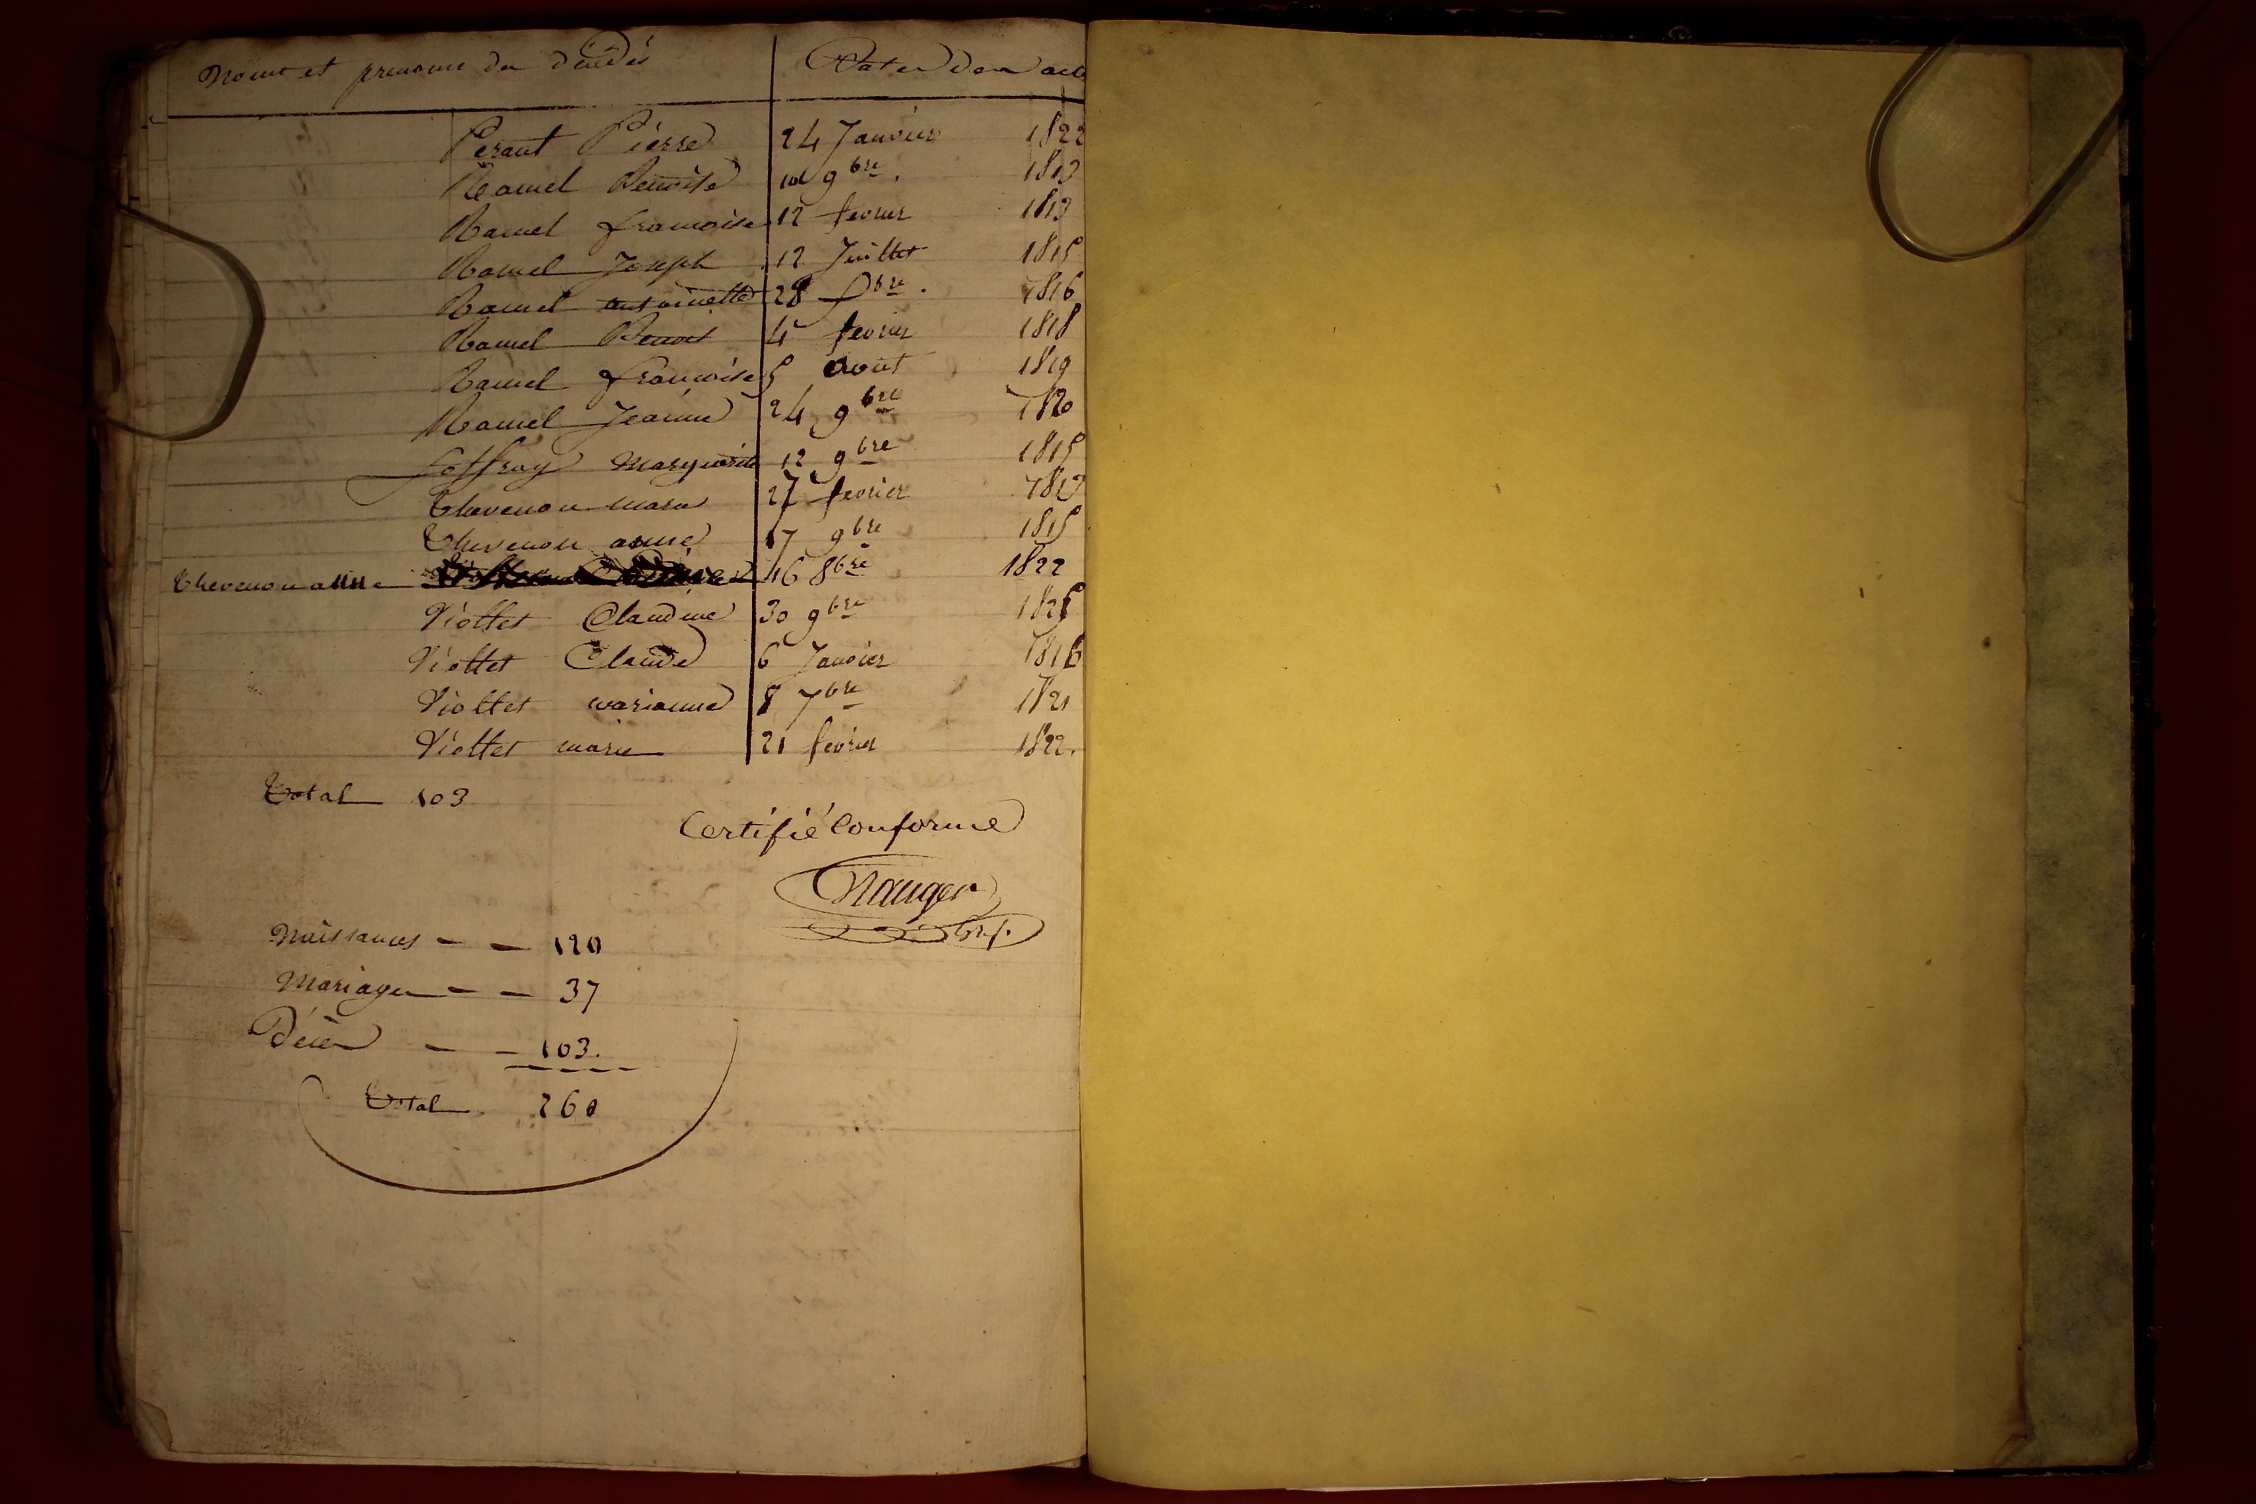 Noms et prenoms des décédés Dates des actes
Peraut Pierre 24 Janvier 1822
Ramel Benoite 10 9bre. 1813
Ramel francoise 12 fevrier 1813
Ramel Joseph 12 Juillet 1815
Ramel antoinette 28 bre. 1816
Ramel Benoit 4 fevrier 1818
Ramel francoise 5 Aout 1819
Ramel Jeanne 24 9bre 1820
Joffray Marguerite 12 9bre 1815
Thevenon marie 27 fevrier 1813
Thevenon anne 17 9bre 1815
Thevenon anne 16 8bre 1822
Viollet Claudine 30 9bre 1815
Viollet Claude 6 Janvier 1816
Viollet marianne 8 7bre 1821
Viollet marie 21 fevrier 1822.
Total 103
Certifié Conforme
Naissances — — 120
Mariages — — 37
Décès — — 103.
Total 260